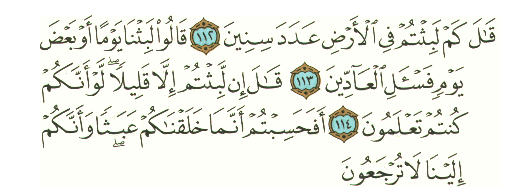 قَٰلَ كَمْ لَبِثْتُمْ فِي الْأَرْضِ عَدَدَ سِنِينَ ١١٢ قَالُوا لَبِثْنَا يَوْمًا أَوْ بَعْضَ
يَوْمٍ فَسْـَٔلِ الْعَادِّينَ ١١٣ قَٰلَ إِن لَّبِثْتُمْ إِلَّا قَلِيلًا ۖ لَّوْ أَنَّكُمْ
كُنتُمْ تَعْلَمُونَ ١١٤ أَفَحَسِبْتُمْ أَنَّمَا خَلَقْنَٰكُمْ عَبَثًا ۖ وَأَنَّكُمْ
إِلَيْنَا لَا تُرْجَعُونَ